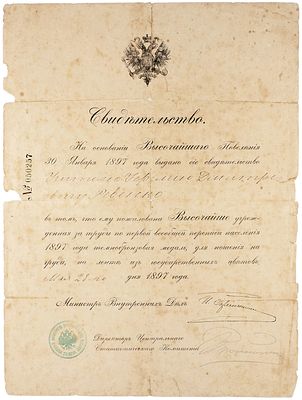 Свидѣтельство.
На основаніи Высочайшаго Повелѣнія
30 Января 1897 года выдано сіе свидѣтельство
въ томъ, что ему пожалована Высочайше учреж-
денная за труды по первой всеобщей переписи населенія
1897 года темнобронзовая медаль, для ношенія на
груди, на лентѣ изъ государственныхъ цвѣтовъ.
Мая 28 дня 1897 года.
Министръ Внутреннихъ Дѣлъ
Директоръ Центральнаго
Статистическаго Комитета
№ 050237